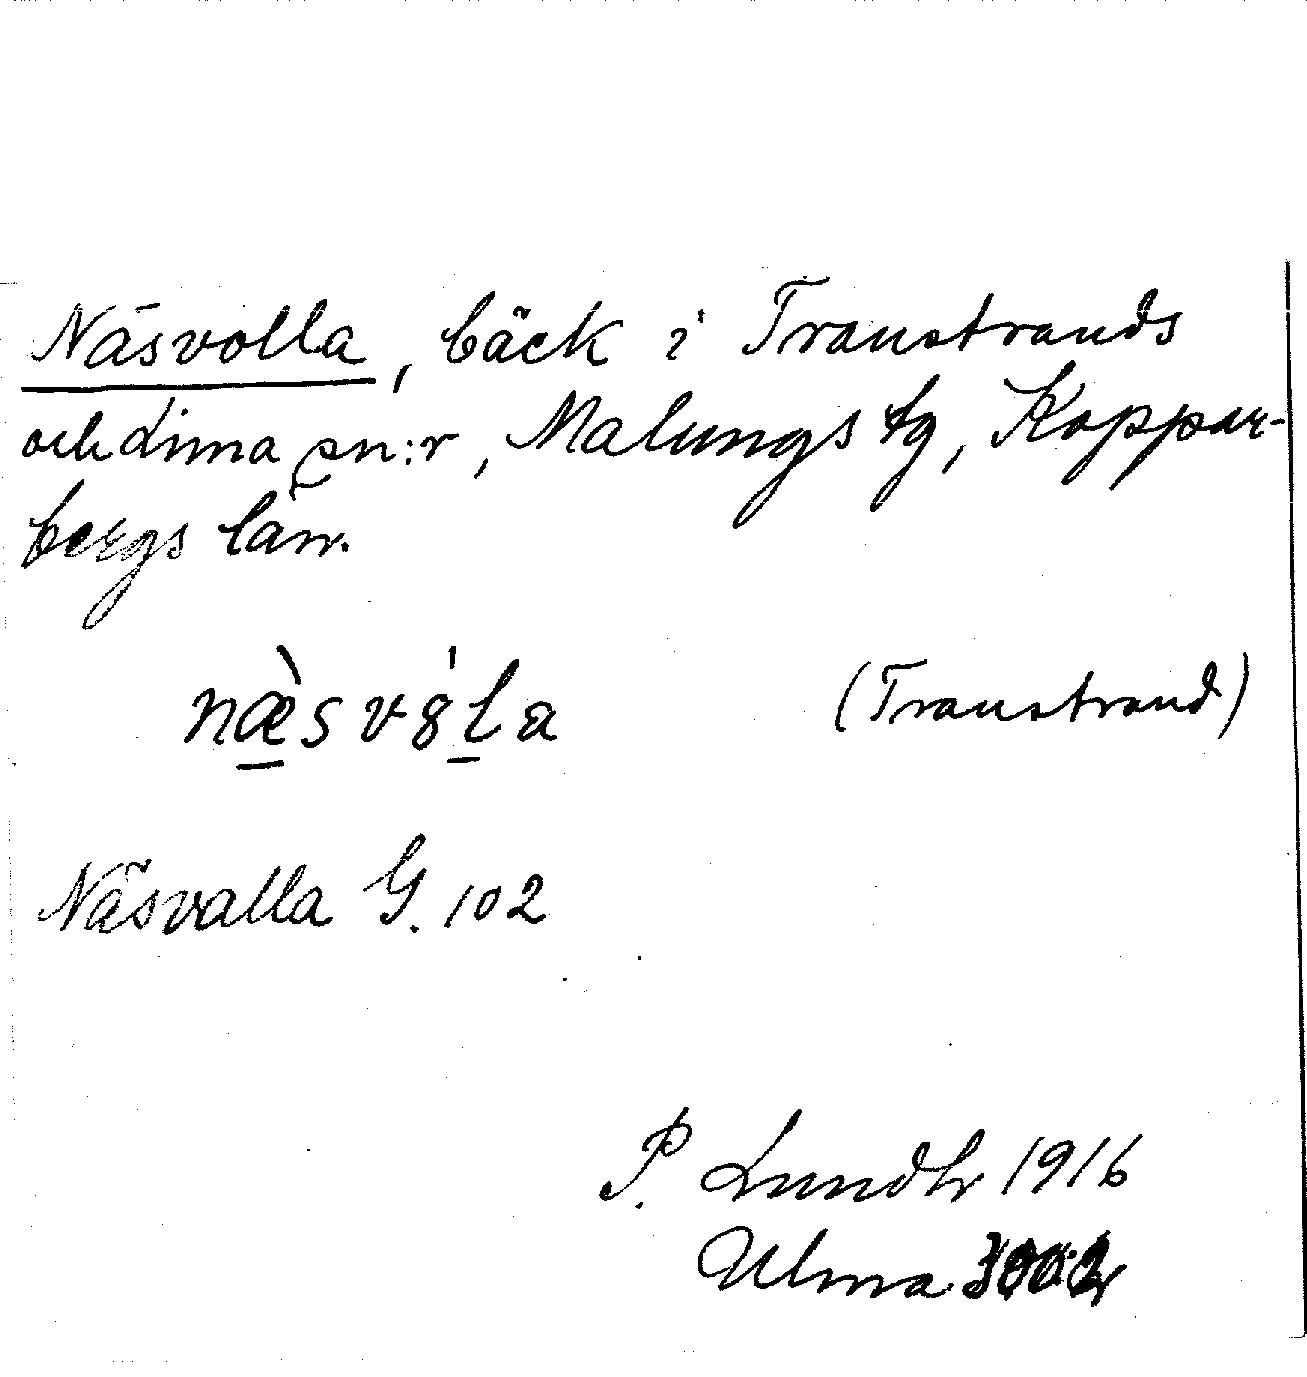 Näsvolla, bäck i Transtrands
och Lima sn:r, Malungs tg, Koppar-
bergs län.
næ̀svȣ̍la (Transtrand)
Näsvalla G. 102
P. Lundbr 1916
Ulma